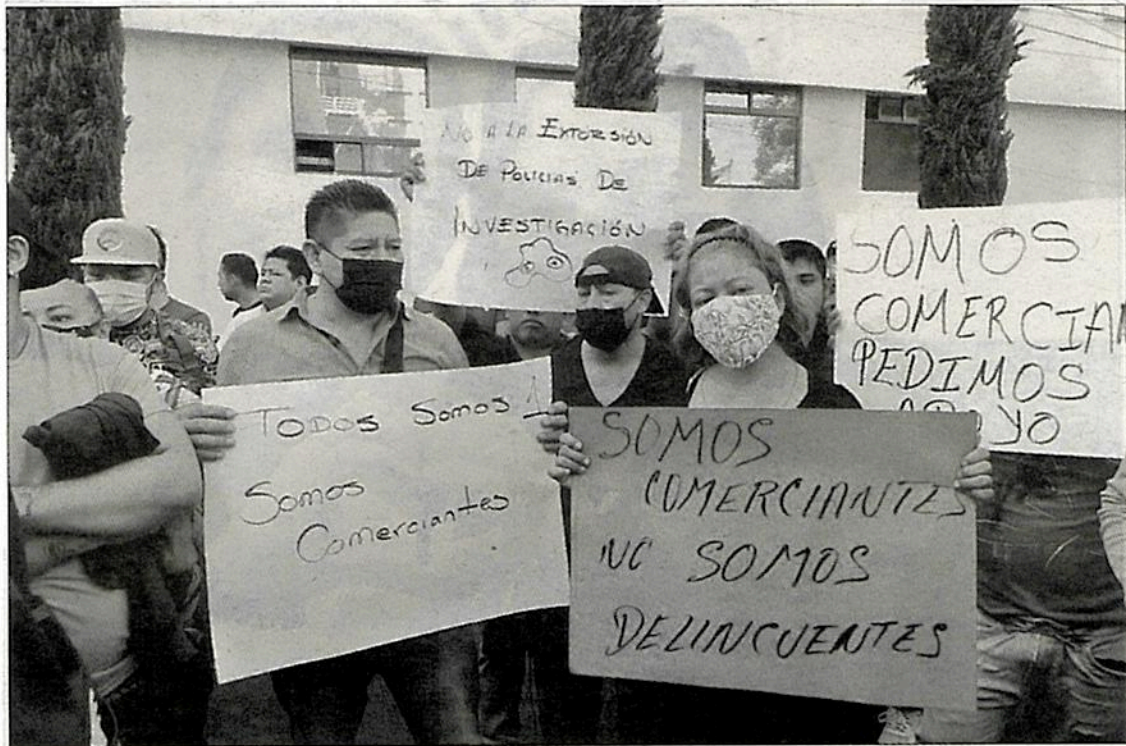 NO A LA EXTORSIÓN
DE POLICIAS DE
INVESTIGACIÓN
SOMOS
COMERCIAN
PEDIMOS
APOYO
TODOS SOMOS 1
SOMOS
COMERCIANTES
SOMOS
COMERCIANTES
NO SOMOS
DELINCUENTES